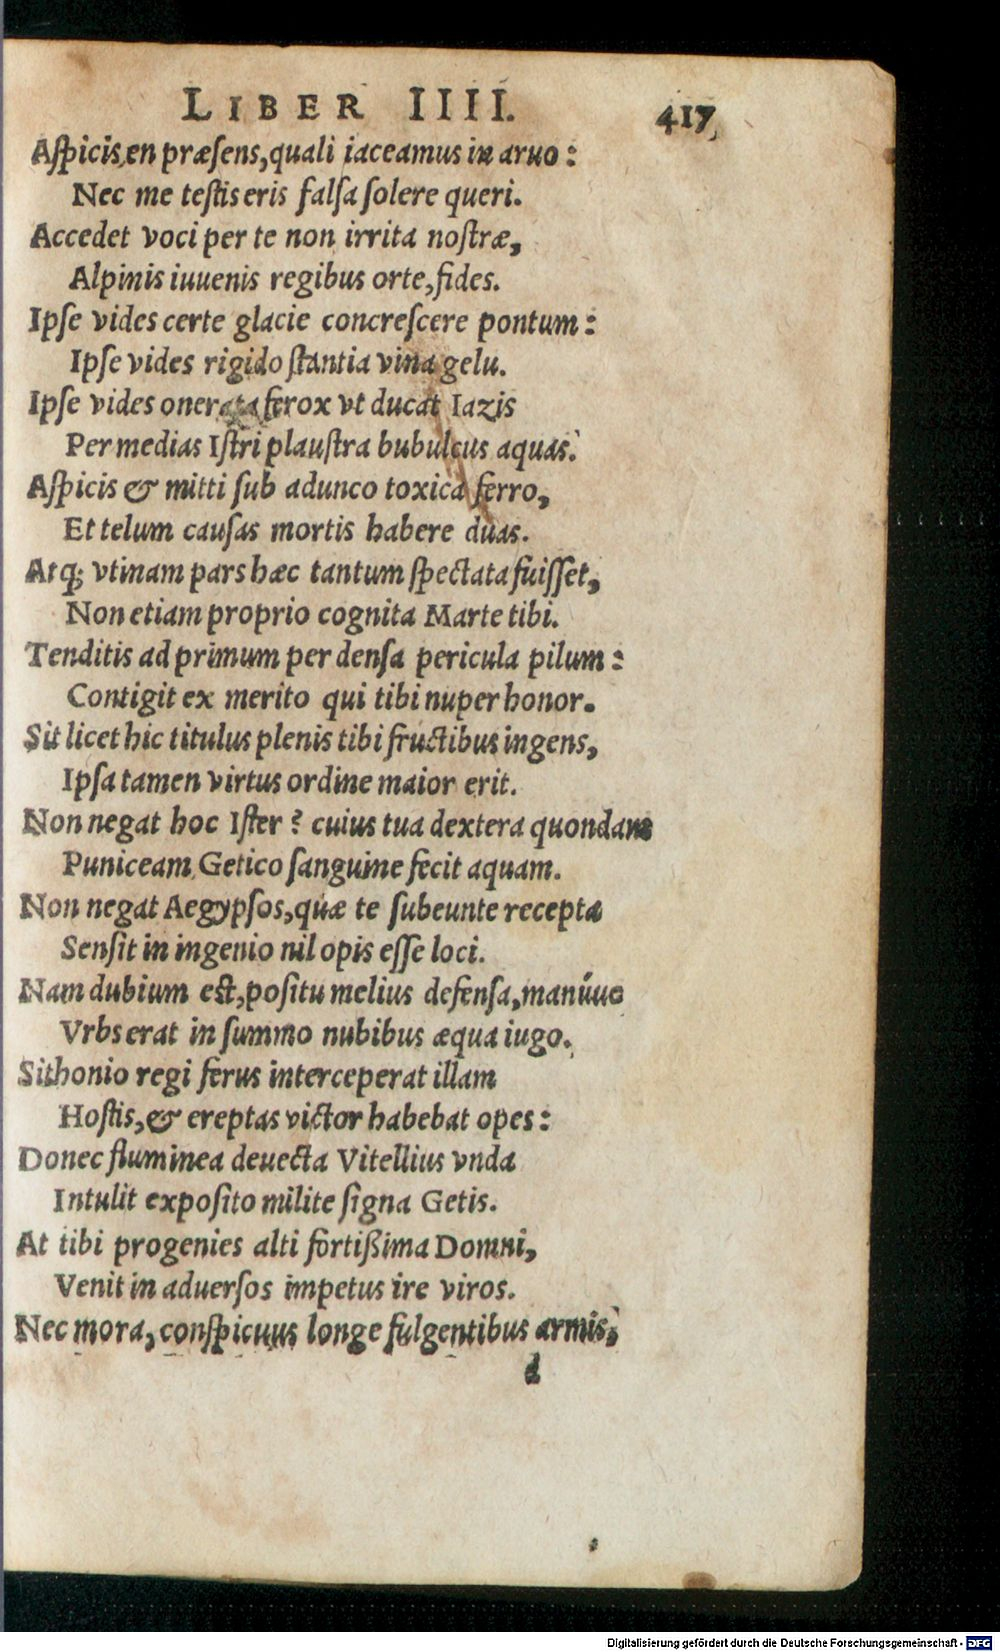 LIBER IIII. 417
Aſpicis, en præſens, quali iaceamus in aruo:
Nec me teſtis eris falſa ſolere queri.
Accedet voci per te non irrita noſtræ,
Alpinis iuuenis regibus orte, fides.
Ipſe vides certe glacie concreſcere pontum:
Ipſe vides rigido ſtantia vina gelu.
Ipſe vides onerata ferox vt ducat Iazis
Per medias Iſtri plauſtra bubulcus aquas.
Aſpicis & mitti ſub adunco toxica ferro,
Et telum cauſas mortis habere duas.
Atq; vtinam pars hæc tantum ſpectata fuiſſet,
Non etiam proprio cognita Marte tibi.
Tenditis ad primum per denſa pericula pilum:
Contigit ex merito qui tibi nuper honor.
Sit licet hic titulus plenis tibi fructibus ingens,
Ipſa tamen virtus ordine maior erit.
Non negat hoc Iſter? cuius tua dextera quondam
Puniceam Getico ſanguine fecit aquam.
Non negat Aegypſos, quæ te ſubeunte recepta
Senſit in ingenio nil opis eſſe loci.
Nam dubium eſt, poſitu melius defenſa, manúue
Vrbs erat in ſummo nubibus æqua iugo.
Sithonio regi ferus interceperat illam
Hoſtis, & ereptas victor habebat opes:
Donec fluminea deuecta Vitellius vnda
Intulit expoſito milite ſigna Getis.
At tibi progenies alti fortißima Domni,
Venit in aduerſos impetus ire viros.
Nec mora, conſpicuus longe fulgentibus armis,
d
Digitalisierung gefördert durch die Deutsche Forschungsgemeinschaft - DFG